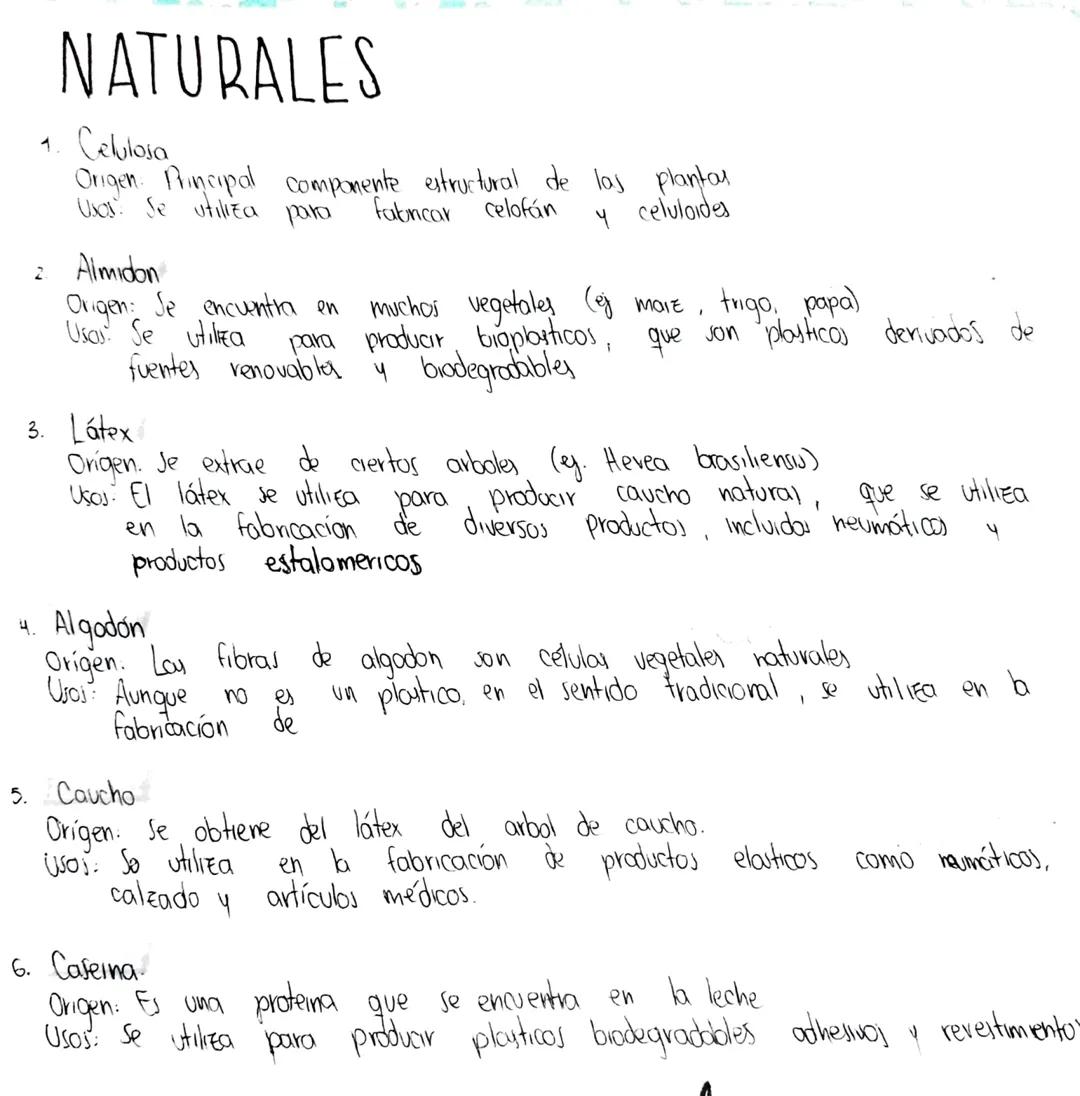 NATURALES
1. Celulosa
Origen: Principal componente estructural de las plantas
Usos: Se utiliza para fabricar celofán y celuloides
2. Almidon
Origen: Se encuentra en muchos vegetales (ej maiz, trigo, papa)
Usos: Se utiliza para producir bioplasticos, que son plasticos derivados de
fuentes renovables y biodegradables
3. Látex
Origen. Se extrae de ciertos arboles (ej. Hevea brasiliensis)
Usos: El látex se utiliza para producir caucho natural, que se utiliza
en la fabricacion de diversos productos, incluidos neumáticos y
productos estalomericos
4. Algodón
Orígen: Las fibras de algodon son células vegetales naturales
Usos: Aunque no es un plastico, en el sentido tradicional, se utiliza en la
fabricación de
5. Caucho
Orígen: Se obtiene del látex del arbol de caucho.
Usos: Se utiliza en la fabricación de productos elasticos como neumáticos,
calzado y artículos médicos.
6. Caseina
Origen: Es una proteina que se encuentra en la leche
Usos: Se utiliza para producir plasticos biodegradables adhesivos y revestimento